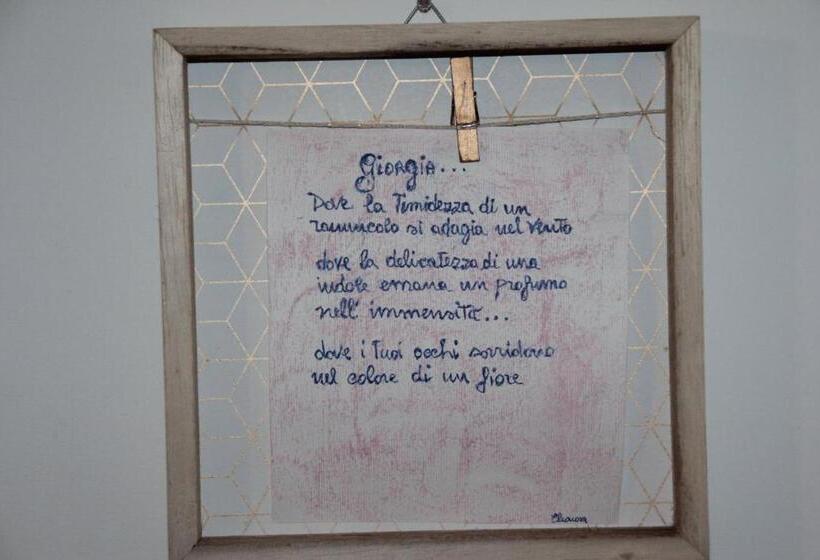 Giorgia...
Dove la Timidezza di un
ranuncolo si adagia nel vento
dove la delicatezza di una
indole emana un profumo
nell' immensità...
dove i Tuoi occhi sorridono
nel colore di un fiore